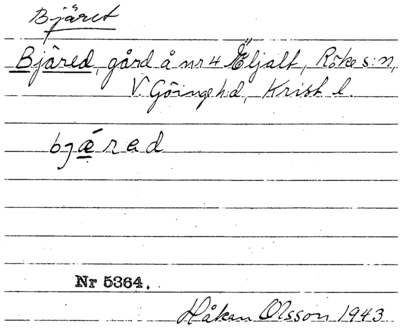 Bjäret
Bjäred, gård å nr 4 Äljalt, Röke s:n,
V. Göinge hd, Krist l.
bjærad
Nr 5364.
Håkan Olsson 1943